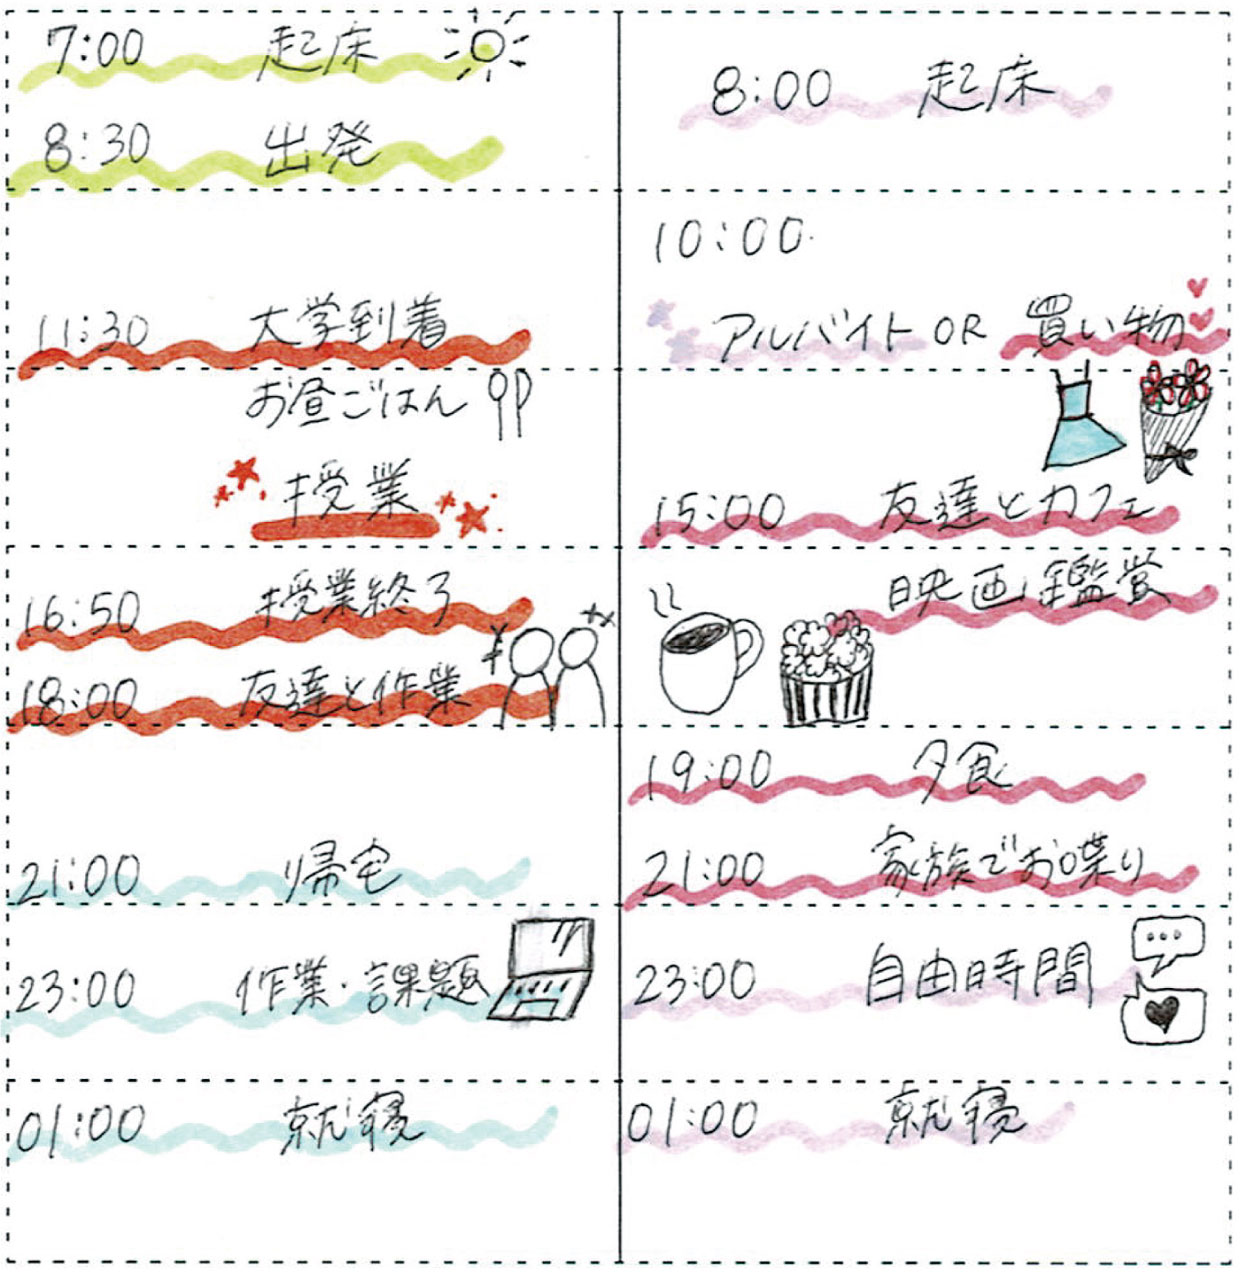 7:00 起床
8:30 出発
11:30 大学到着
お昼ごはん
授業
16:50 授業終了
18:00 友達と作業
21:00 帰宅
23:00 作業・課題
01:00 就寝
8:00 起床
10:00
アルバイト OR 買い物
15:00 友達とカフェ
映画鑑賞
19:00 夕食
21:00 家族でお喋り
23:00 自由時間
01:00 就寝